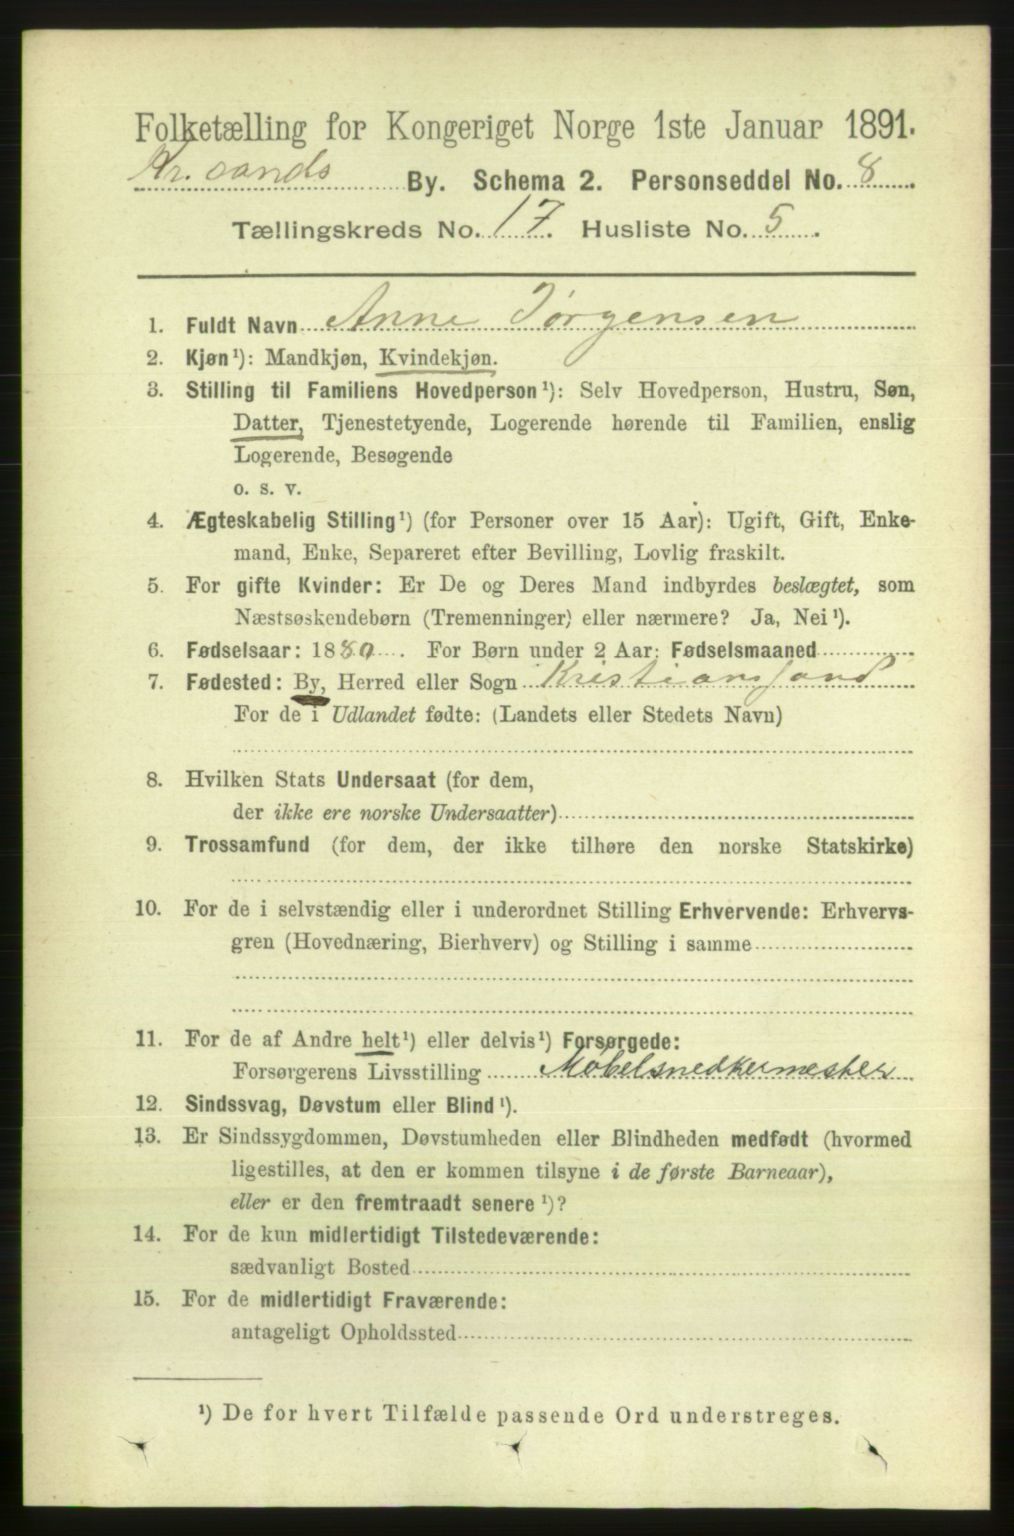 Folketælling for Kongeriget Norge 1ste Januar 1891.
Kr. sands By. Schema 2. Personseddel No. 8.
Tællingskreds No. 17. Husliste No. 5.
1. Fuldt Navn Anne Jørgensen
2. Kjøn¹): Mandkjøn, Kvindekjøn.
3. Stilling til Familiens Hovedperson¹): Selv Hovedperson, Hustru, Søn,
Datter, Tjenestetyende, Logerende hørende til Familien, enslig
Logerende, Besøgende
o. s. v.
4. Ægteskabelig Stilling¹) (for Personer over 15 Aar): Ugift, Gift, Enke-
mand, Enke, Separeret efter Bevilling, Lovlig fraskilt.
5. For gifte Kvinder: Er De og Deres Mand indbyrdes beslægtet, som
Næstsøskendebørn (Tremenninger) eller nærmere? Ja, Nei¹).
6. Fødselsaar: 1880. For Børn under 2 Aar: Fødselsmaaned
7. Fødested: By, Herred eller Sogn Kristianssand
For de i Udlandet fødte: (Landets eller Stedets Navn)
8. Hvilken Stats Undersaat (for dem,
der ikke ere norske Undersaatter)
9. Trossamfund (for dem, der ikke tilhøre den norske Statskirke)
10. For de i selvstændig eller i underordnet Stilling Erhvervende: Erhvervs-
gren (Hovednæring, Bierhverv) og Stilling i samme
11. For de af Andre helt¹) eller delvis¹) Forsørgede:
Forsørgerens Livsstilling Møbelsnedkermester
12. Sindssvag, Døvstum eller Blind¹).
13. Er Sindssygdommen, Døvstumheden eller Blindheden medfødt (hvormed
ligestilles, at den er kommen tilsyne i de første Barneaar),
eller er den fremtraadt senere¹)?
14. For de kun midlertidigt Tilstedeværende:
sædvanligt Bosted
15. For de midlertidigt Fraværende:
antageligt Opholdssted
¹) De for hvert Tilfælde passende Ord understreges.